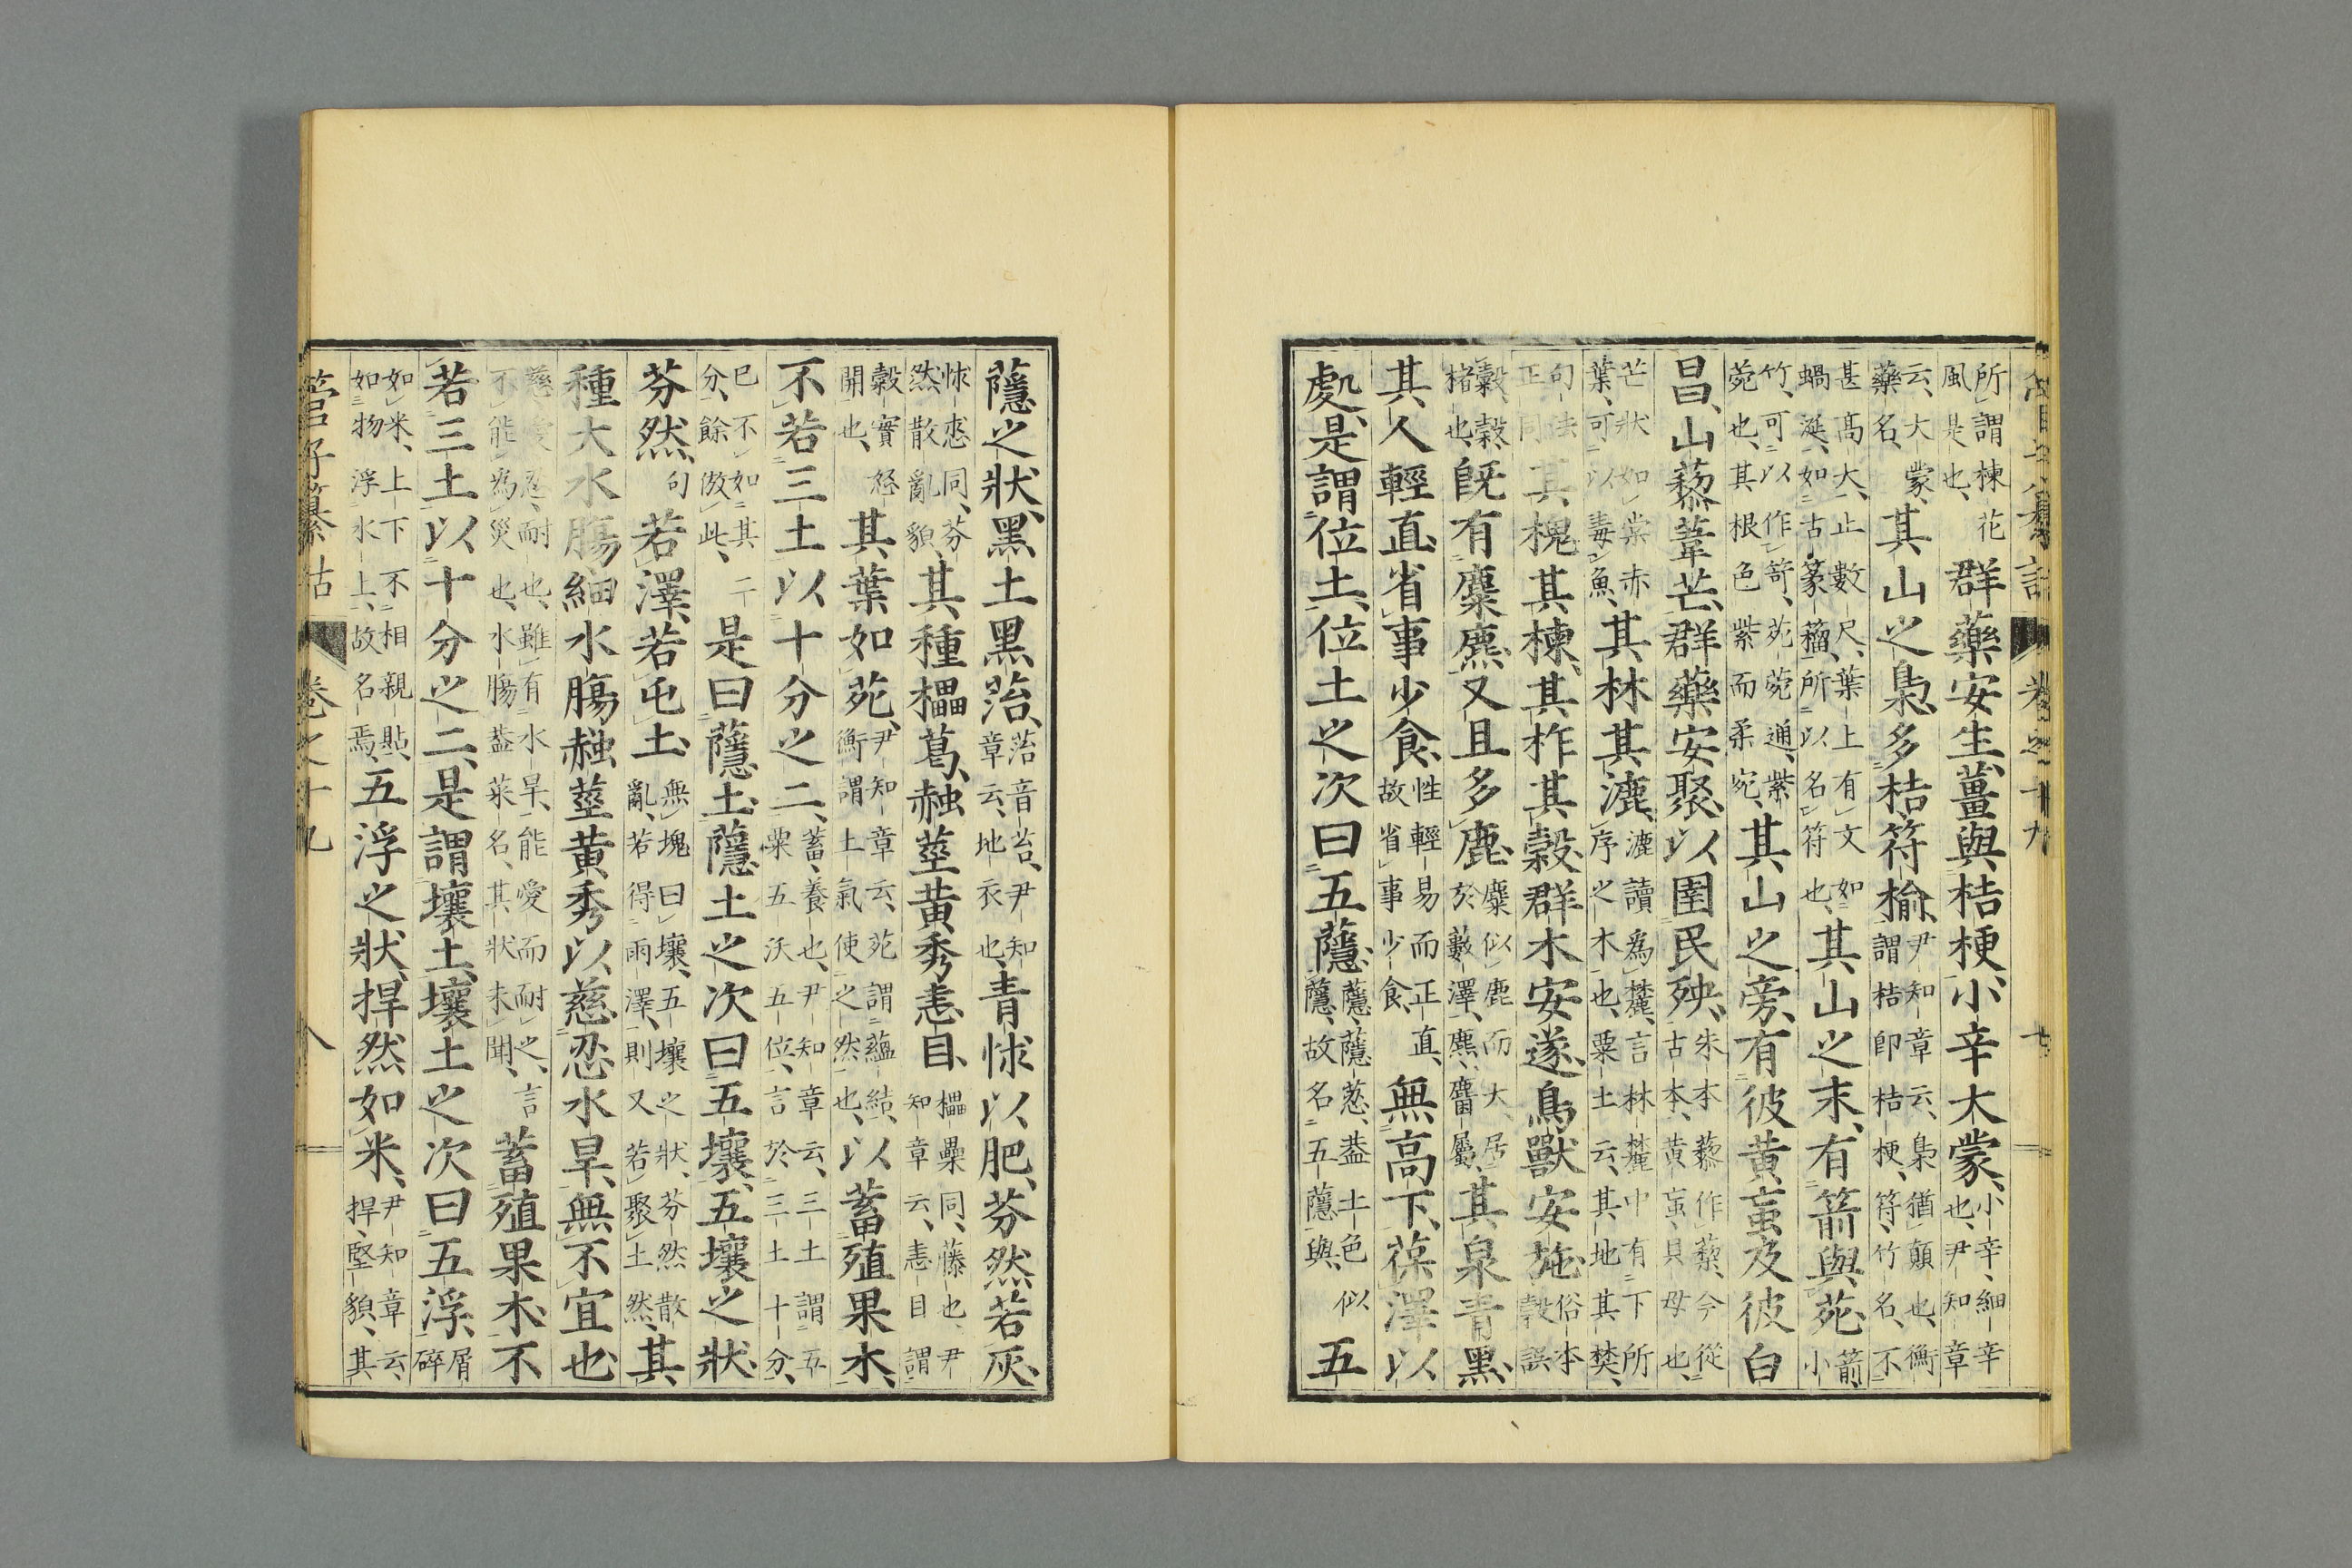 所謂楝花風是也、群藥安生、薑與桔梗、小辛大蒙、小辛、細辛也、尹知章
云、大蒙、藥名、其山之梟、多桔符榆、尹知章云、梟猶顛也、衡謂桔即桔梗、符、竹名、不
甚高大、止數尺、葉上有文如蝸涎、如古篆籀、所以名符也、其山之末、有箭與苑、箭小
竹、可以作笴、苑菀通、紫菀也、其根色紫而柔宛、其山之旁、有彼黄䖟及彼白
昌、山藜葦芒、群藥安聚、以圉民殃、朱本藜作今從古本、黄䖟貝母也、
芒狀如棠赤葉、可以毒魚、其林其漉、漉讀為麓、言林麓中有下所序之木也、粟土云、其地其樊、
句法正同其槐其楝、其柞其榖、群木安遂、鳥獸安施、俗本榖誤
穀、榖、楮也、既有麋麃、又且多鹿、麋似鹿而大、居於藪澤、麃、麞屬、其泉青黑、
其人輕直、省事少食、性輕易而正直、故省事少食、無高下、葆澤以
處、是謂位土、位土之次曰五蘟、蘟、蘟葱、蓋土色似蘟、故名五蘟與、五
蘟之狀、黑土黑菭、菭音苔、尹知章云、地衣也、青怵以肥、芬然若灰、
怵悐同、芬然、散亂貌、其種櫑葛、赨莖黄秀恚目、櫑蘽同、藤也、尹知章云、恚目謂
穀實怒開也、其葉如苑、尹知章云、苑謂蘊結、衡謂土氣使之然也、以蓄殖果木、
不若三土以十分之二、蓄、養也、尹知章云、三土謂五粟五沃五位、言於三土十分、
已不如其二分、餘倣此、是曰蘟土、蘟土之次曰五壤、五壤之狀、
芬然、句若澤、若屯土、無塊曰壤、五壤之狀、芬然散亂、若得雨澤、則又若聚土然、其
種大水腸細水腸、赨莖黄秀以慈、忍水旱、無不宜也、
慈愛忍耐也、雖有水旱、能愛而耐之、言不能為災也、水腸蓋菜名、其狀未聞、蓄殖果木、不
若三土以十分之二、是謂壤土、壤土之次曰五浮、屑碎
如米、上下不相親貼、如物浮水上、故名焉、五浮之狀、捍然如米、尹知章云、捍、堅貌、其
管子纂詁 卷之十九 八